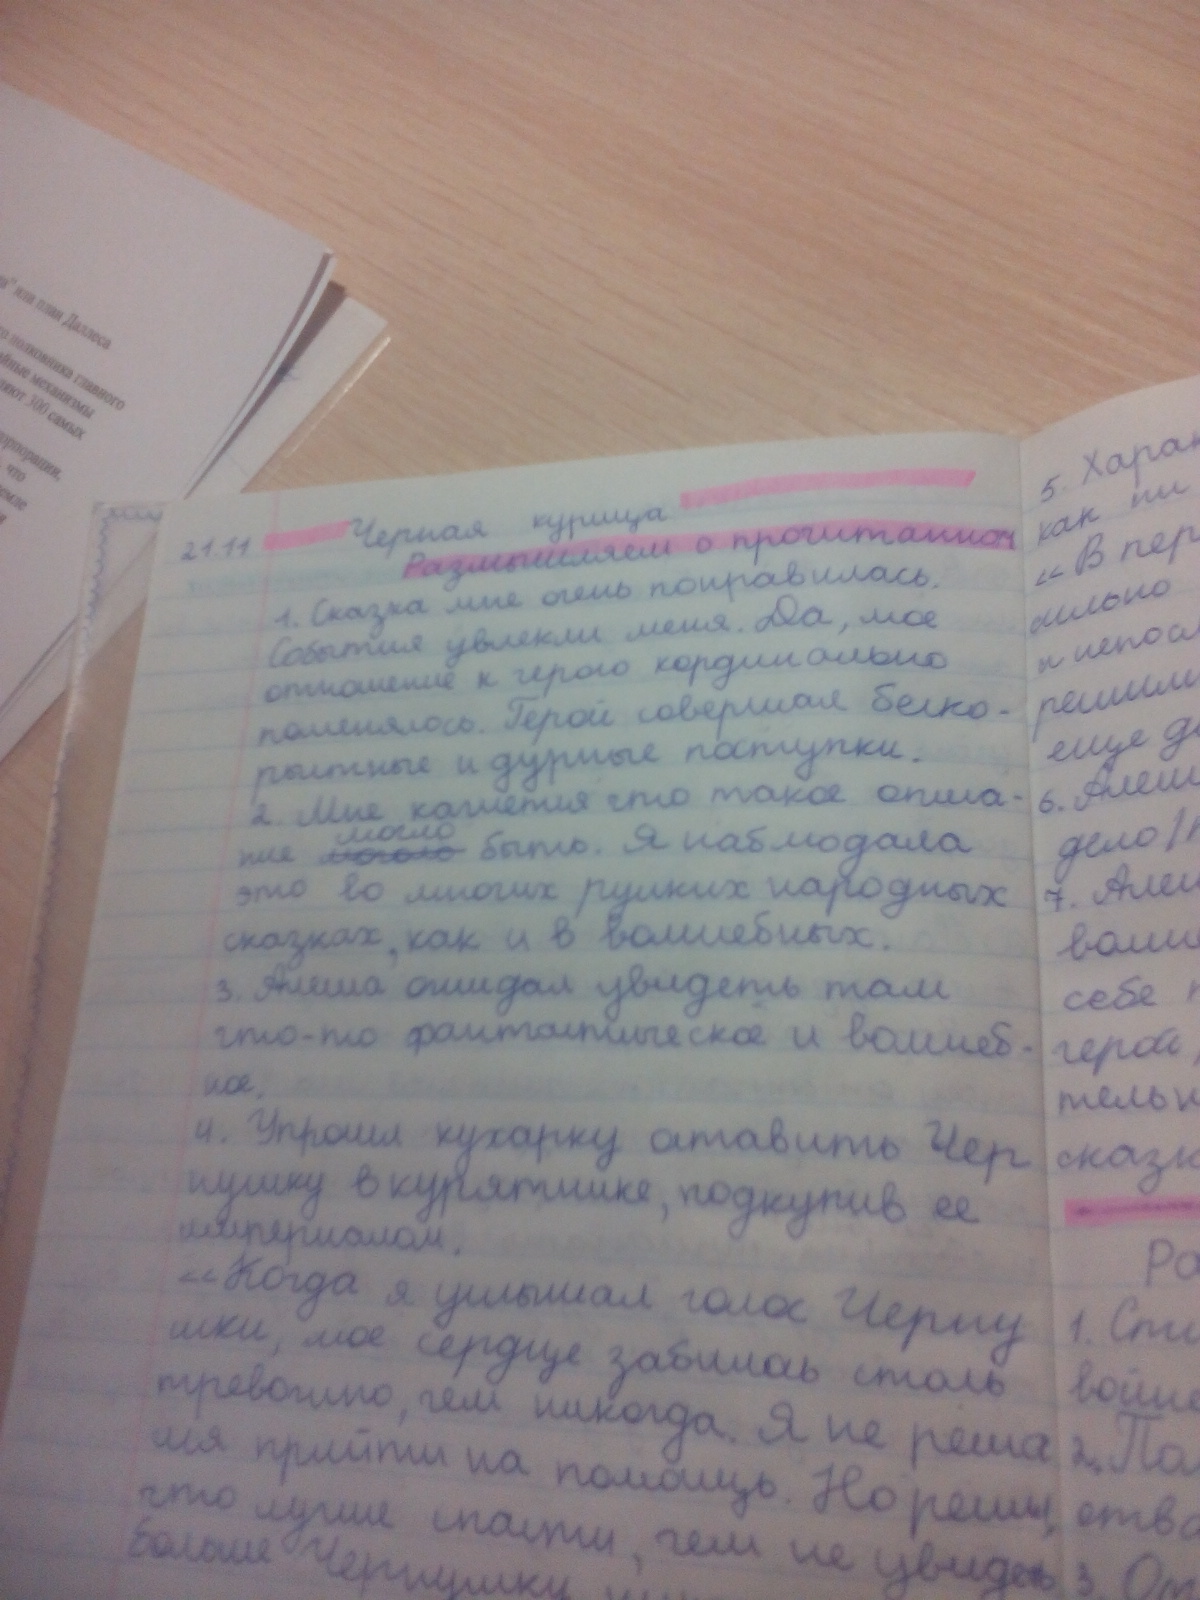 " или план Даллеса
полковника главного
механизмы
300 самых
корпорации,
что
21.11 Черная курица
Размышляем о прочитанном
1. Сказка мне очень понравилась.
События увлекли меня. Да, мое
отношение к герою кординально
поменялось. Герой совершал беско-
рыстные и дурные поступки.
2. Мне кажется что такое описа-
ние могло быть. Я наблюдала
это во многих руских народных
сказках, как и в волшебных.
3. Алеша ожидал увидеть там
что-то фантастическое и волшеб-
ное.
4. Упросил кухарку оставить Чер
нушку в курятнике, подкупив ее
империалом.
«Когда я услышал голос Черну
шки, мое сердце забилось столь
тревожно, чем никогда. Я не реша
лся прийти на помощь. Но решил,
что лучше спасти, чем не увидеть
больше Чернушку
5. Харак
как ни
« В пер
сильно
и непосл
решили
еще до
6. Алеш
дело
7. Алеш
волше
себе п
герой
тельн
сказк
Ра
1. Сти
войне
2. Пол
отва
3. От